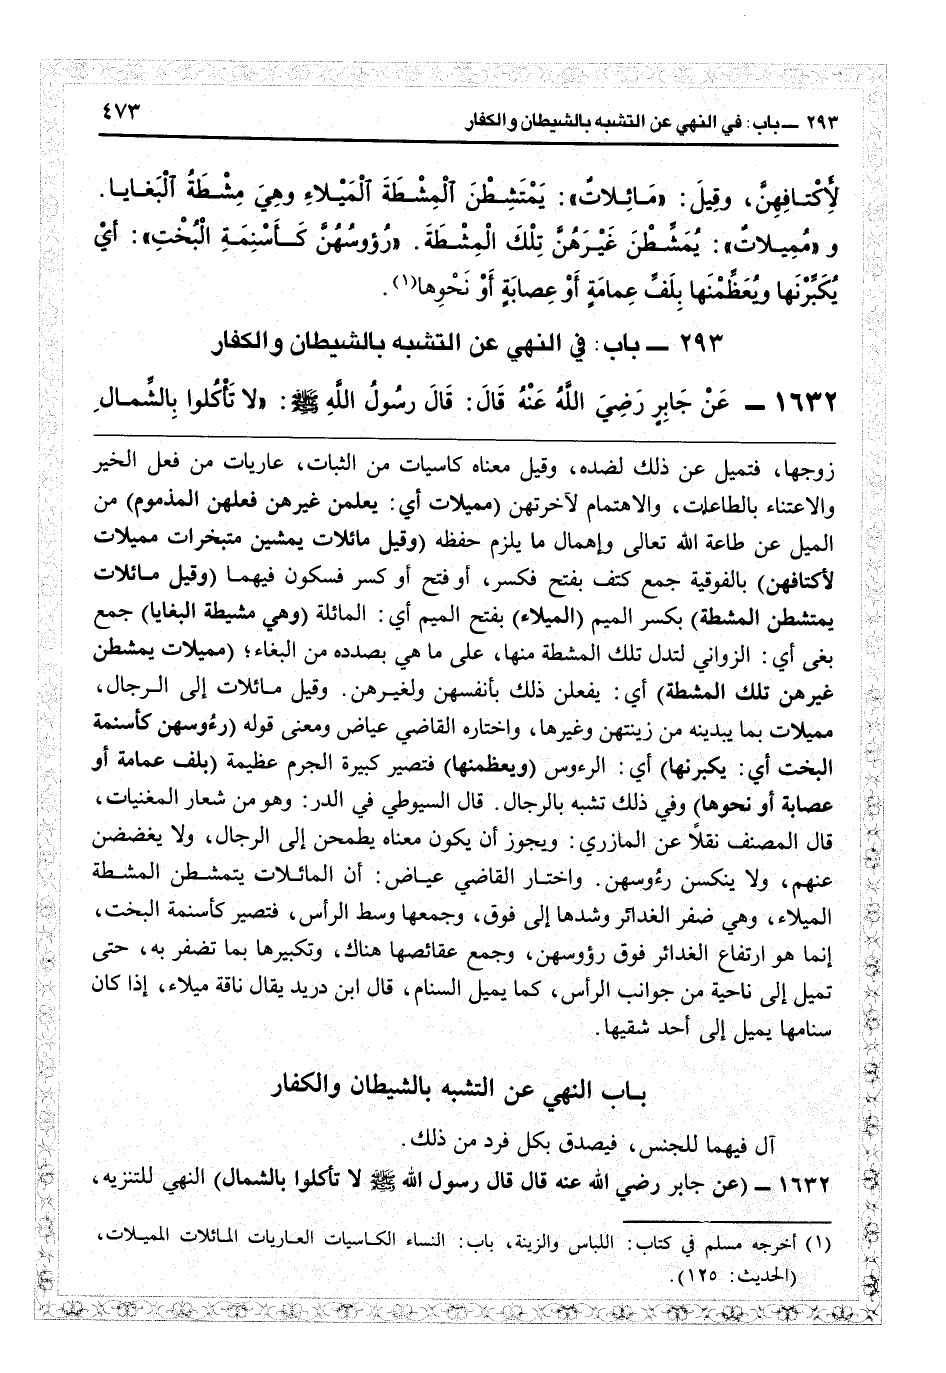 ٢٩٣ ـ باب: في النهي عن التشبه بالشيطان والكفار ٤٧٣
لِأَكْتافِهِنَّ، وقِيلَ: «مَائِلاتٌ»: يَمْتَشِطْنَ الْمِشْطَةَ الْمَيْلاءِ وهِيَ مِشْطَةُ الْبَغايا.
و «مُمِيلاتٌ»: يُمَشِّطْنَ غَيْرَهُنَّ تِلْكَ الْمِشْطَةَ. «رُؤوسُهُنَّ كَأَسْنِمَةِ الْبُخْتِ»: أيْ
يُكَبِّرْنَها ويُعَظِّمْنَها بِلَفِّ عِمامَةٍ أَوْ عِصابَةٍ أَوْ نَحْوِها(١).
٢٩٣ ـ باب: في النهي عن التشبه بالشيطان والكفار
١٦٣٢ ـ عَنْ جَابِرٍ رَضِيَ اللَّهُ عَنْهُ قَالَ: قَالَ رسُولُ اللَّهِ ﷺ: «لا تَأْكُلوا بِالشِّمالِ
زوجها، فتميل عن ذلك لضده، وقيل معناه كاسيات من الثبات، عاريات من فعل الخير
والاعتناء بالطاعات، والاهتمام لآخرتهن (مميلات أي: يعلمن غيرهن فعلهن المذموم) من
الميل عن طاعة الله تعالى وإهمال ما يلزم حفظه (وقيل مائلات يمشين متبخرات مميلات
لأكتافهن) بالفوقية جمع كتف بفتح فكسر، أو فتح أو كسر فسكون فيهما (وقيل مائلات
يمتشطن المشطة) بكسر الميم (الميلاء) بفتح الميم أي: المائلة (وهي مشيطة البغايا) جمع
بغى أي: الزواني لتدل تلك المشطة منها، على ما هي بصدده من البغاء؛ (مميلات يمشطن
غيرهن تلك المشطة) أي: يفعلن ذلك بأنفسهن ولغيرهن. وقيل مائلات إلى الرجال،
مميلات بما يبدينه من زينتهن وغيرها، واختاره القاضي عياض ومعنى قوله (رءُوسهن كأسنمة
البخت أي: يكبرنها) أي: الرءوس (ويعظمنها) فتصير كبيرة الجرم عظيمة (بلف عمامة أو
عصابة أو نحوها) وفي ذلك تشبه بالرجال. قال السيوطي في الدر: وهو من شعار المغنيات،
قال المصنف نقلاً عن المازري: ويجوز أن يكون معناه يطمحن إلى الرجال، ولا يغضضن
عنهم، ولا ينكسن رءُوسهن. واختار القاضي عياض: أن المائلات يتمشطن المشطة
الميلاء، وهي ضفر الغدائر وشدها إلى فوق، وجمعها وسط الرأس، فتصير كأسنمة البخت،
إنما هو ارتفاع الغدائر فوق رؤوسهن، وجمع عقائصها هناك، وتكبيرها بما تضفر به، حتى
تميل إلى ناحية من جوانب الرأس، كما يميل السنام، قال ابن دريد يقال ناقة ميلاء، إذا كان
سنامها يميل إلى أحد شقيها.
باب النهي عن التشبه بالشيطان والكفار
آل فيهما للجنس، فيصدق بكل فرد من ذلك.
١٦٣٢ ـ (عن جابر رضي الله عنه قال قال رسول الله ﷺ لا تأكلوا بالشمال) النهي للتنزيه،
(١) أخرجه مسلم في كتاب: اللباس والزينة، باب: النساء الكاسيات العاريات المائلات المميلات،
(الحديث: ١٢٥).